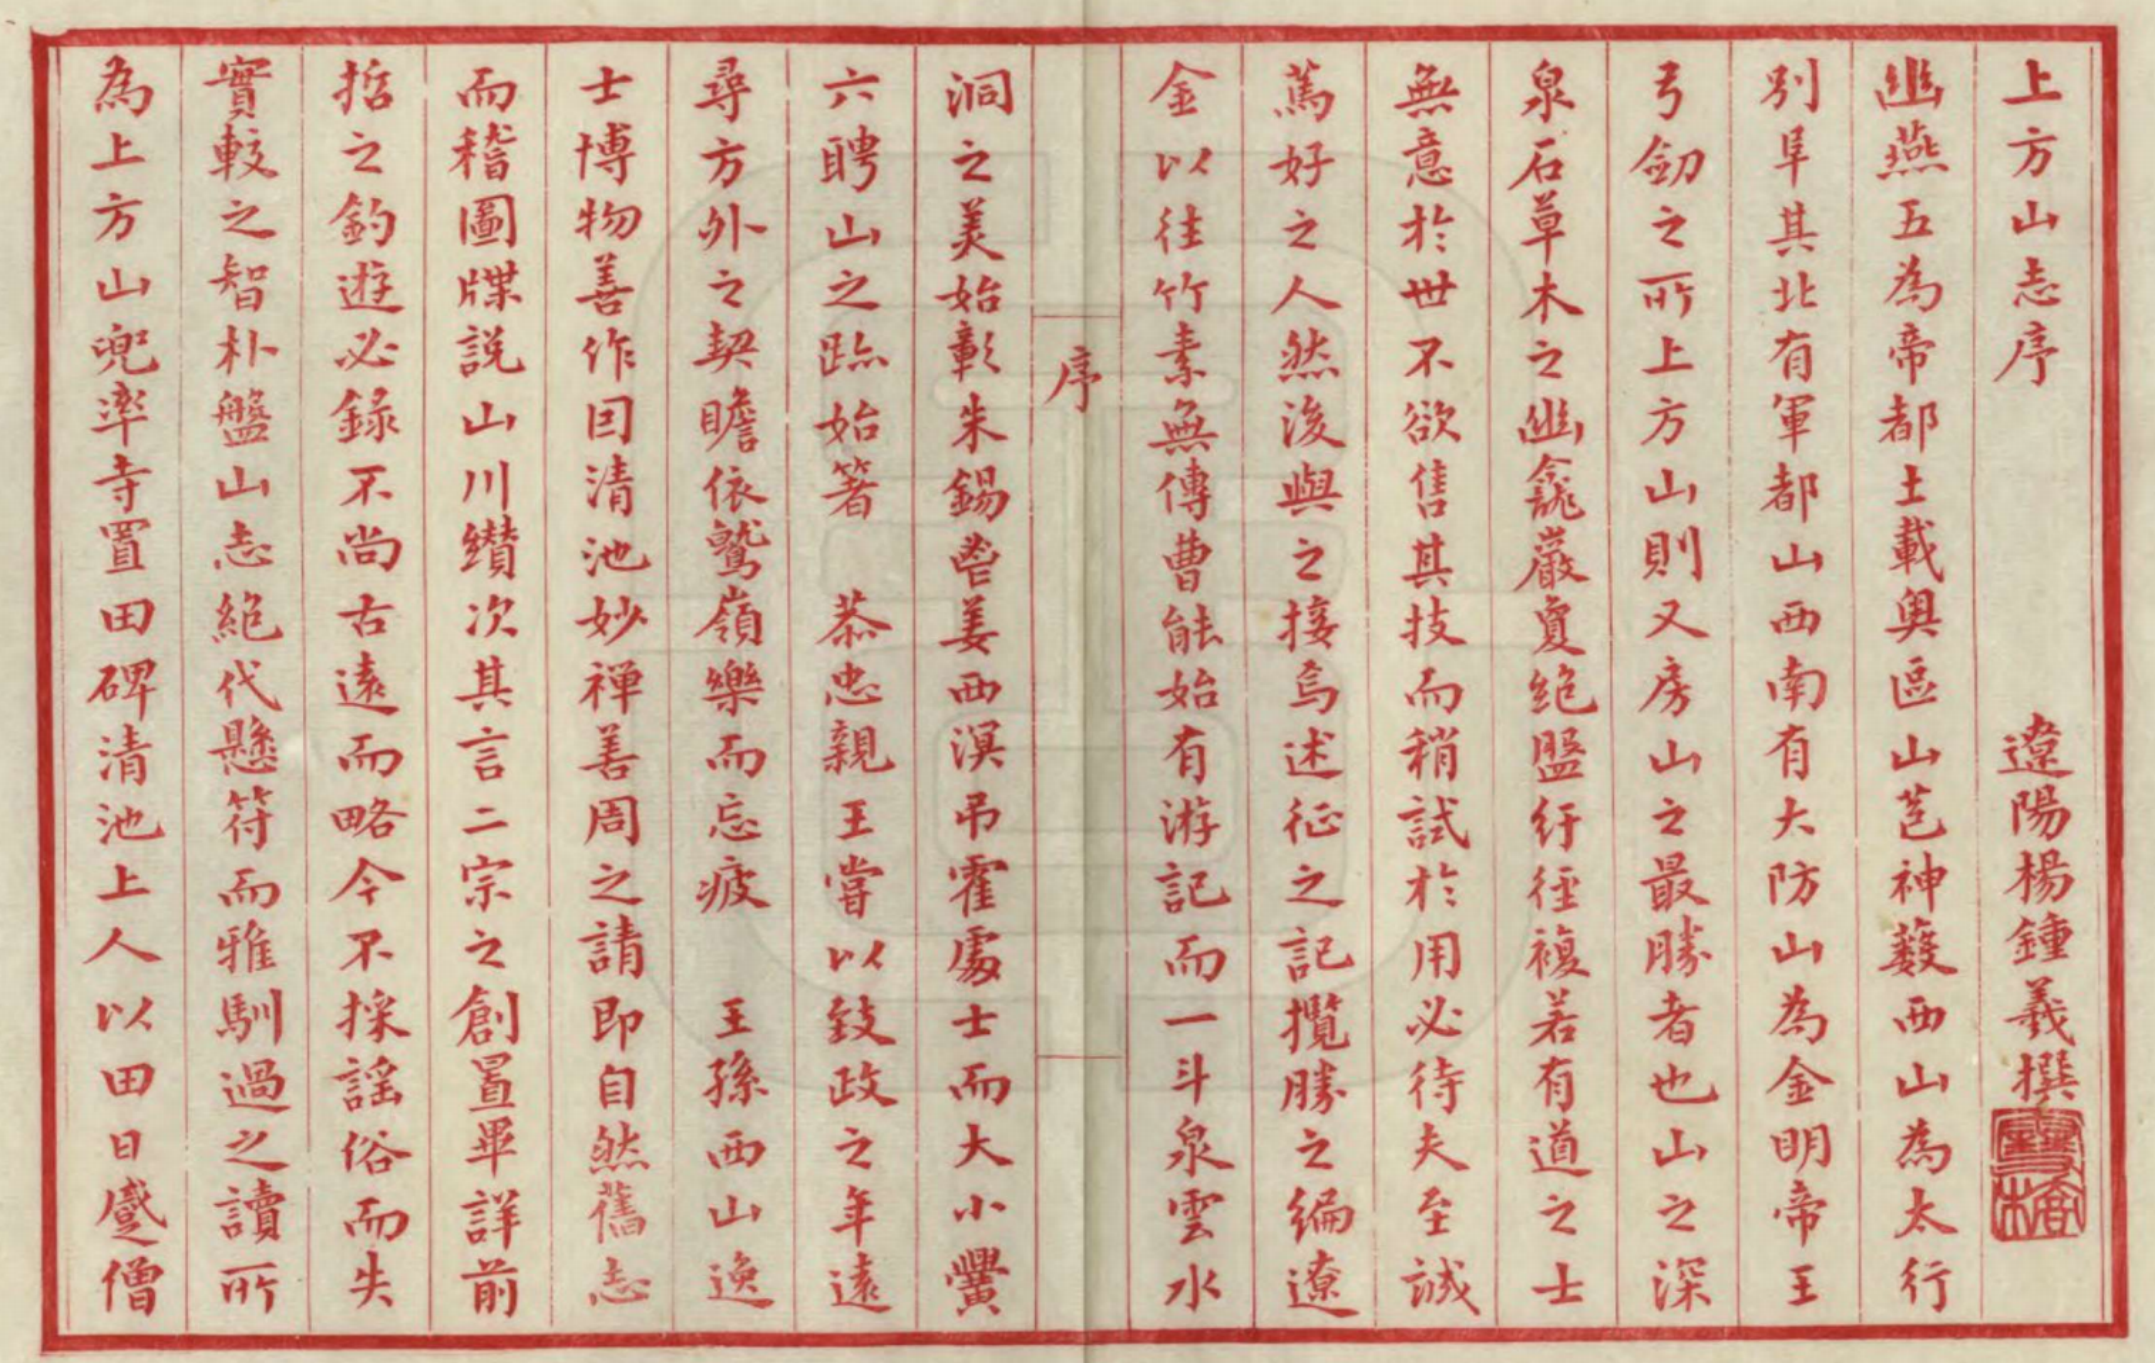 上方山志序　遼陽楊鍾羲撰
幽燕五為帝都土載輿區山苞神藪西山為太行
別阜其北有軍都山西南有大防山為金明帝王
弓劒之所上方山則又房山之最勝者也山之深
泉石草木之幽龕巖夐絶盤紆徑複若有道之士
無意於世不欲售其技而稍試於用必待夫至誠
篤好之人然後與之接焉述征之記攬勝之編遼
金以往竹素無傳曹能始有游記而一斗泉雲水
序
洞之美始彰朱錫鬯姜西溟吊霍處士而大小黌
六聘山之跡始著　恭忠親王嘗以致政之年遠
尋方外之契瞻依鷲嶺樂而忘疲　王孫西山逸
士博物善作因清池妙禪善周之請即自然舊志
而稽圖牒說山川纘次其言二宗之創置畢詳前
哲之釣遊必錄不尚古遠而略今不採謠俗而失
實較之智朴盤山志絕代懸符而雅馴過之讀所
為上方山兜率寺置田碑清池上人以田日蹙僧